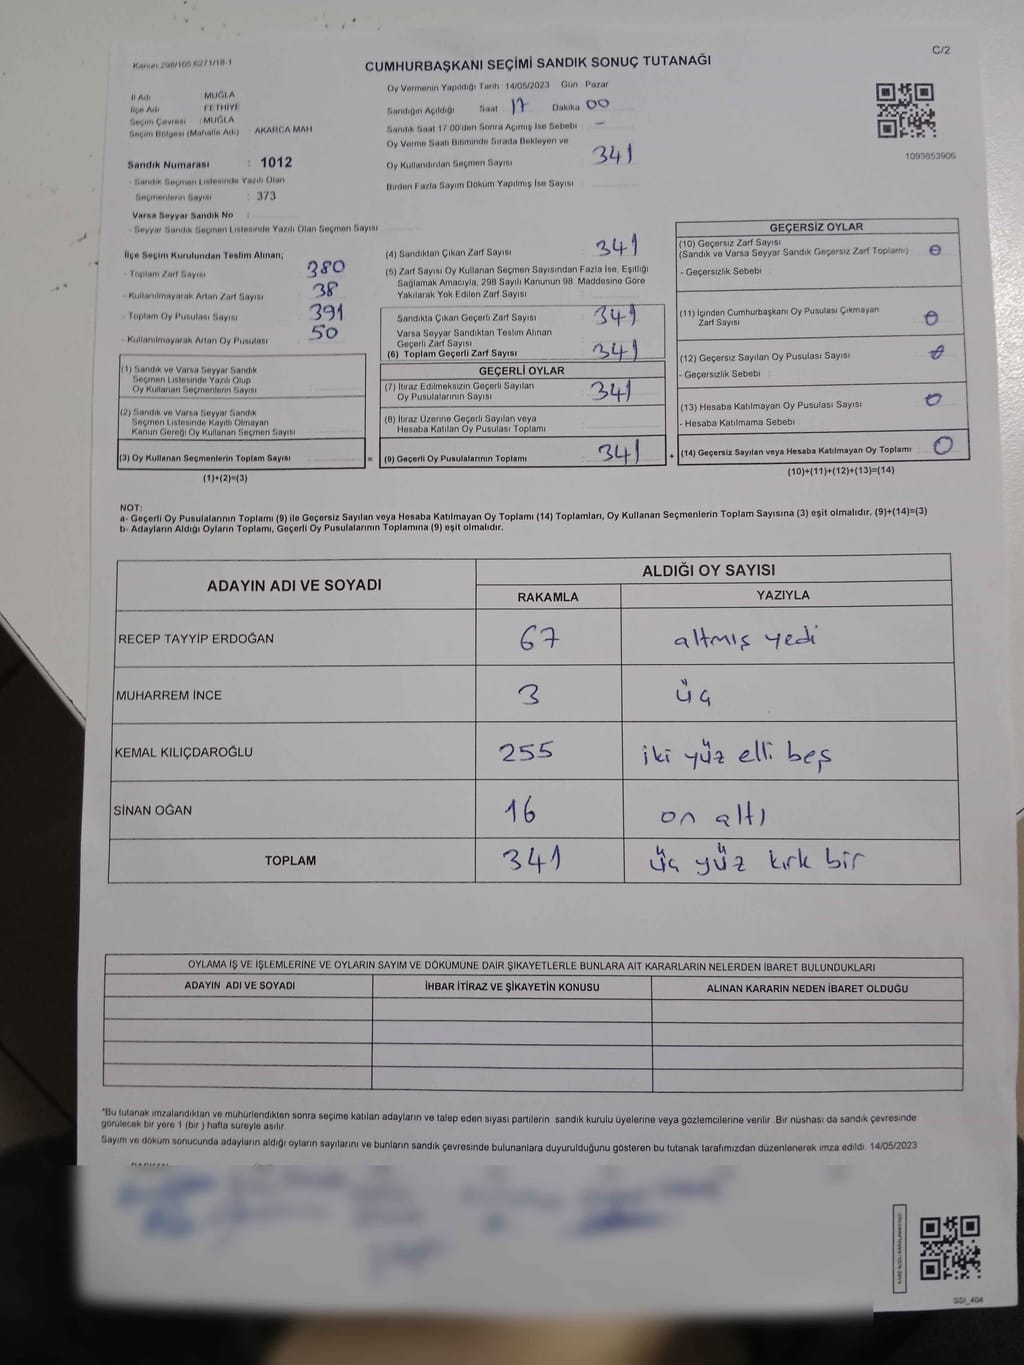 Kanun 298/105.6271/18-1
C/2
CUMHURBAŞKANI SEÇİMİ SANDIK SONUÇ TUTANAĞI
İl Adı : MUĞLA
İlçe Adı : FETHİYE
Seçim Çevresi : MUĞLA
Seçim Bölgesi (Mahalle Adı) AKARCA MAH
Sandık Numarası : 1012
- Sandık Seçmen Listesinde Yazılı Olan
Seçmenlerin Sayısı : 373
Varsa Seyyar Sandık No
- Seyyar Sandık Seçmen Listesinde Yazılı Olan Seçmen Sayısı
Oy Vermenin Yapıldığı Tarih :14/05/2023 Gün Pazar
Sandığın Açıldığı Saat 17 Dakika 00
Sandık Saat 17.00'den Sonra Açımış İse Sebebi –
Oy Verme Saati Bitiminde Sırada Bekleyen ve
Oy Kullandırılan Seçmen Sayısı 341
Birden Fazla Sayım Döküm Yapılmış İse Sayısı
1093853906
İlçe Seçim Kurulundan Teslim Alınan;
- Toplam Zarf Sayısı 380
- Kullanılmayarak Artan Zarf Sayısı 38
- Toplam Oy Pusulası Sayısı 391
- Kullanılmayarak Artan Oy Pusulası 50
(1) Sandık ve Varsa Seyyar Sandık
Seçmen Listesinde Yazılı Olup
Oy Kullanan Seçmenlerin Sayısı
(2) Sandık ve Varsa Seyyar Sandık
Seçmen Listesinde Kayıtlı Olmayan
Kanun Gereği Oy Kullanan Seçmen Sayısı
(3) Oy Kullanan Seçmenlerin Toplam Sayısı
(1)+(2)=(3)
=
(4) Sandıktan Çıkan Zarf Sayısı 341
(5) Zarf Sayısı Oy Kullanan Seçmen Sayısından Fazla İse, Eşitliği
Sağlamak Amacıyla, 298 Sayılı Kanunun 98. Maddesine Göre
Yakılarak Yok Edilen Zarf Sayısı
Sandıkta Çıkan Geçerli Zarf Sayısı 341
Varsa Seyyar Sandıktan Teslim Alınan
Geçerli Zarf Sayısı
(6) Toplam Geçerli Zarf Sayısı 341
GEÇERLİ OYLAR
(7) İtiraz Edilmeksizin Geçerli Sayılan
Oy Pusulalarının Sayısı 341
(8) İtiraz Üzerine Geçerli Sayılan veya
Hesaba Katılan Oy Pusulası Toplamı
(9) Geçerli Oy Pusulalarının Toplamı 341
+
GEÇERSİZ OYLAR
(10) Geçersiz Zarf Sayısı
(Sandık ve Varsa Seyyar Sandık Geçersiz Zarf Toplamı) 0
- Geçersizlik Sebebi
(11) İçinden Cumhurbaşkanı Oy Pusulası Çıkmayan
Zarf Sayısı 0
(12) Geçersiz Sayılan Oy Pusulası Sayısı 0
- Geçersizlik Sebebi
(13) Hesaba Katılmayan Oy Pusulası Sayısı 0
- Hesaba Katılmama Sebebi
(14) Geçersiz Sayılan veya Hesaba Katılmayan Oy Toplamı 0
(10)+(11)+(12)+(13)=(14)
NOT:
a- Geçerli Oy Pusulalarının Toplamı (9) ile Geçersiz Sayılan veya Hesaba Katılmayan Oy Toplamı (14) Toplamları, Oy Kullanan Seçmenlerin Toplam Sayısına (3) eşit olmalıdır. (9)+(14)=(3)
b- Adayların Aldığı Oyların Toplamı, Geçerli Oy Pusulalarının Toplamına (9) eşit olmalıdır.
ADAYIN ADI VE SOYADI
ALDIĞI OY SAYISI
RAKAMLA YAZIYLA
RECEP TAYYİP ERDOĞAN 67 altmış yedi
MUHARREM İNCE 3 üç
KEMAL KILIÇDAROĞLU 255 iki yüz elli beş
SİNAN OĞAN 16 on altı
TOPLAM 341 üç yüz kırk bir
OYLAMA İŞ VE İŞLEMLERİNE VE OYLARIN SAYIM VE DÖKÜMÜNE DAİR ŞİKAYETLERLE BUNLARA AİT KARARLARIN NELERDEN İBARET BULUNDUKLARI
ADAYIN ADI VE SOYADI İHBAR İTİRAZ VE ŞİKAYETİN KONUSU ALINAN KARARIN NEDEN İBARET OLDUĞU
*Bu tutanak imzalandıktan ve mühürlendikten sonra seçime katılan adayların ve talep eden siyasi partilerin sandık kurulu üyelerine veya gözlemcilerine verilir. Bir nüshası da sandık çevresinde
görülecek bir yere 1 (bir ) hafta süreyle asılır.
Sayım ve döküm sonucunda adayların aldığı oyların sayılarını ve bunların sandık çevresinde bulunanlara duyurulduğunu gösteren bu tutanak tarafımızdan düzenlenerek imza edildi. 14/05/2023
SSİ_404